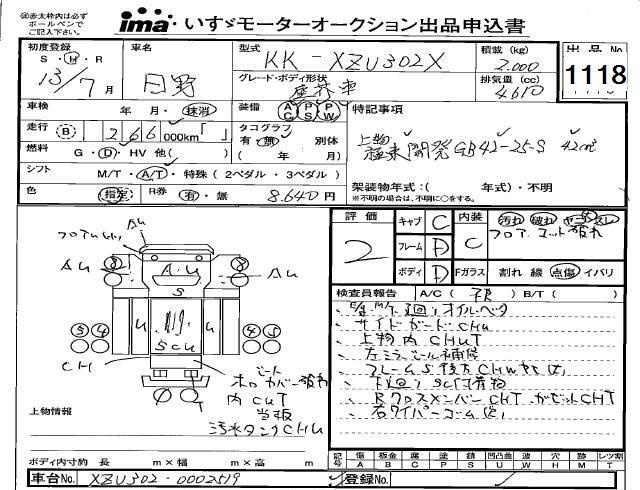 ㊟赤太枠内は必ず
ボールペンで
ご記入下さい。
ima いすゞモーターオークション出品申込書
初度登録
S・H・R
13/7月
車名
日野
型式
KK-XZU302X
グレード・ボディ形状
塵芥車
積載(kg)
2.000
排気量(cc)
4.610
出品No
1118
車検 年・月・抹消
装備 AC PS PW
特記事項
走行 B 266000km「 」
タコグラフ
有・無 別体
( 年 月)
上物
極東開発 GB42-25-S 4.2m³
燃料 G・D・HV 他( )
シフト M/T・A/T・特殊(2ペダル・3ペダル)
架装物年式:( 年式)・不明
※不明の場合は、不明に○をする。
色 指定 R券 有・無 8.640円
評価 キャブ C 内装 汚れ 破れ ヤニ スレ
2 フレーム D C フロア、シート破れ
ボディ D Fガラス 割れ 線 点傷 イバリ
検査員報告 A/C( ) B/T( )
サイドガードCHU
上物内CHUT
左ミラーステー補修
下廻りSC付着物
RクロスメンバーCHT ガセットCHT
右ワイパーゴム欠
AU
AU
AU
AU
S
U
U
SCU
CH
シート
ホロカバー破れ
内CUT
当板
汚水タンクCHU
上物情報
ボディ内寸約 長 m×幅 m×高 m
記号 傷 板金 腐 塗 錆 凹凸曲 穴 飛石 マーク レツ割
A B C P S U H M T
車台No. XZU302-0002519
登録No.